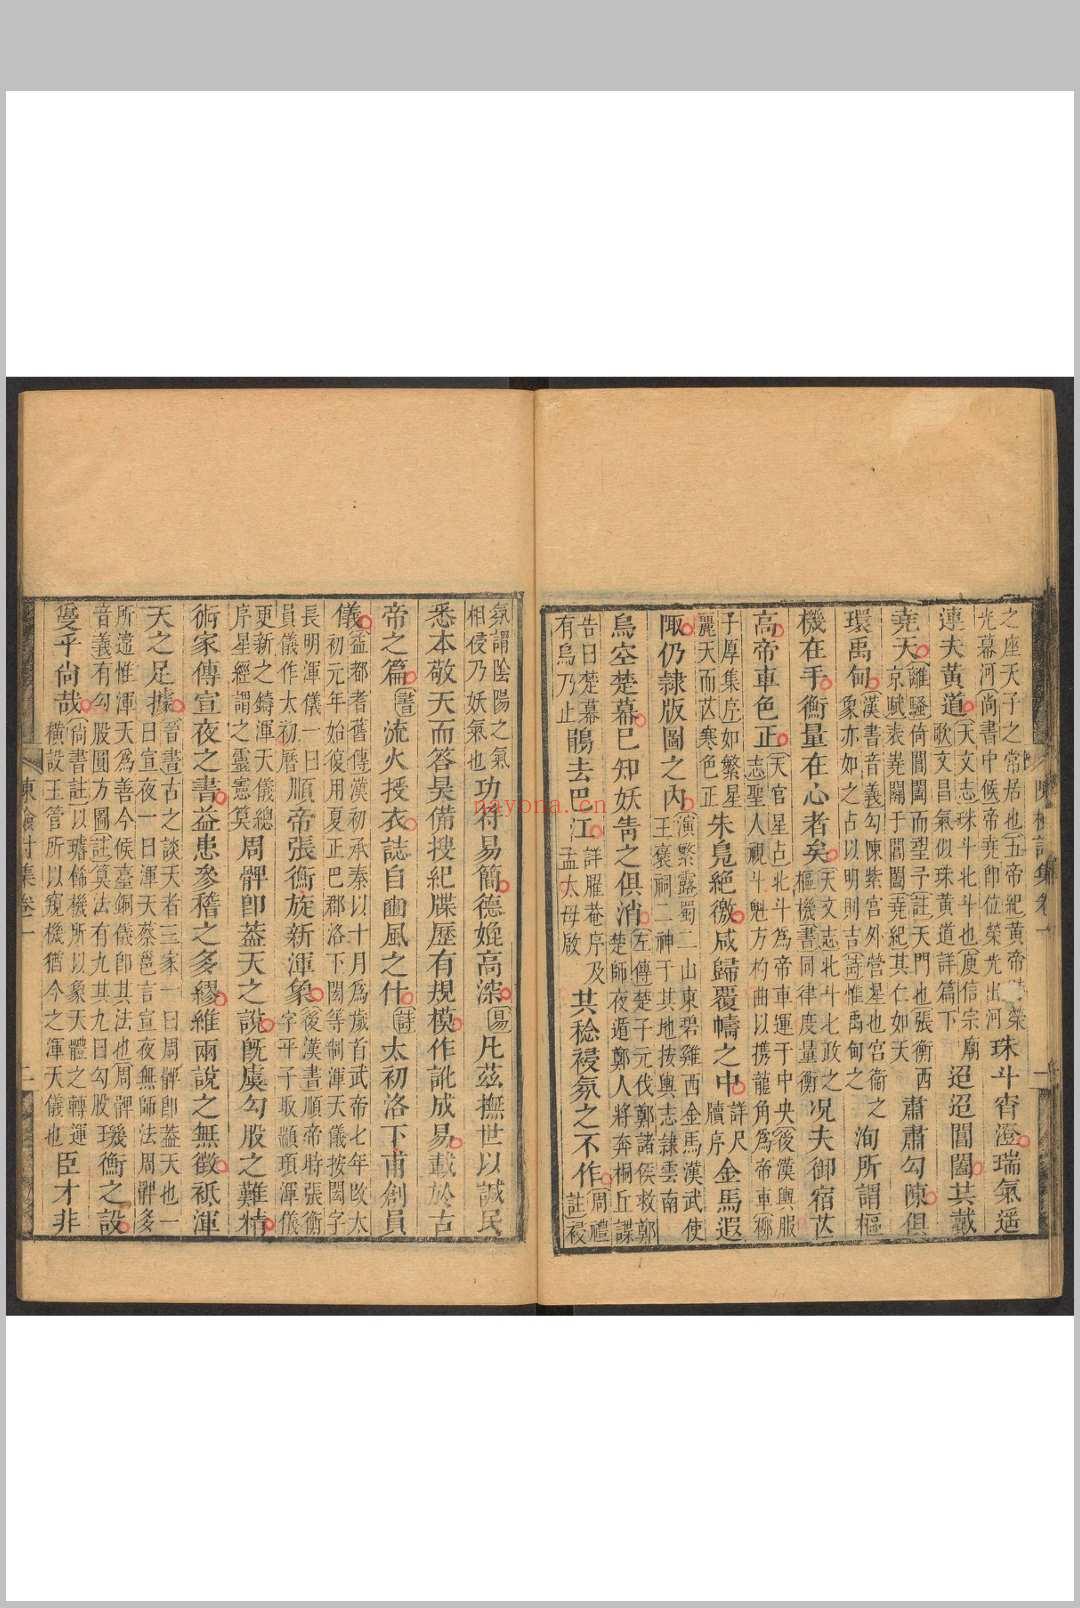 之座天子之常居也五帝紀黃帝
光幕河尚書中候帝堯卽位榮光出河
珠斗宵澄瑞氣遥
連夫黃道天文志珠斗北斗也庾信宗廟
歌文昌氣似珠黃道詳篇下
迢迢閶闔其戴
堯天離騷倚閶闔而望予註天門也張衡西
京賦表嶤闕于閶闔堯紀其仁如天
肅肅勾陳俱
環禹甸漢書音義勾陳紫宮外營星也宮衞之
象亦如之占以明則吉詩惟禹甸之
洵所謂樞
機在手衡量在心者矣天文志北斗七政之
樞機書同律度量衡
况夫御宿苡
高帝車色正天官星占北斗爲帝車運于中央後漢輿服
志聖人視斗魁方杓曲以携龍角爲帝車
子厚集序如繁星
麗天而苡寒色正
朱鳬絶徼咸歸覆幬之中詳尺
牘序
金馬遐
陬仍隷版圖之內演繁露蜀二山東碧雞西金馬漢武使
王襃祠二神于其地按輿志隷雲南
烏空楚幕巳知妖眚之俱消左傳楚子元伐鄭諸侯救鄭
楚師夜遁鄭人將奔桐丘諜
告曰楚幕
有烏乃止
鵑去巴江詳臞菴序及
孟太母啟
共稔祲氛之不作周禮
註祲
氛謂陰陽之氣
相侵乃妖氣也
功符易簡德媲高深易凡茲撫世以諴民
悉本敬天而答昊備搜紀牒歷有規模作訛成易載於古
帝之篇書流火授衣誌自豳風之什詩太初洛下甫創員
儀益都耆舊傳漢初承秦以十月爲歲首武帝七年改太
初元年始復用夏正巴郡洛下閎等制渾天儀按閎字
長明渾儀一曰
員儀作太初曆
順帝張衡旋新渾象後漢書順帝時張衡
字平子取顓頊渾儀
更新之鑄渾天儀總
序星經謂之靈憲算
周髀卽葢天之說旣虞勾股之難精
術家傳宣夜之書益患參稽之多繆維兩說之無徵祇渾
天之足據晉書古之談天者三家一曰周髀卽葢天也一
曰宣夜一曰渾天蔡邕言宣夜無師法周髀多
所違惟渾天爲善今候臺銅儀卽其法也周髀
音義有勾股圓方圖註筭法有九其九曰勾股
璣衡之設
夐乎尙哉尙書註以璿餙機所以象天體之轉運
橫設玉管所以窺機猶今之渾天儀也
臣才非
nayona.cn